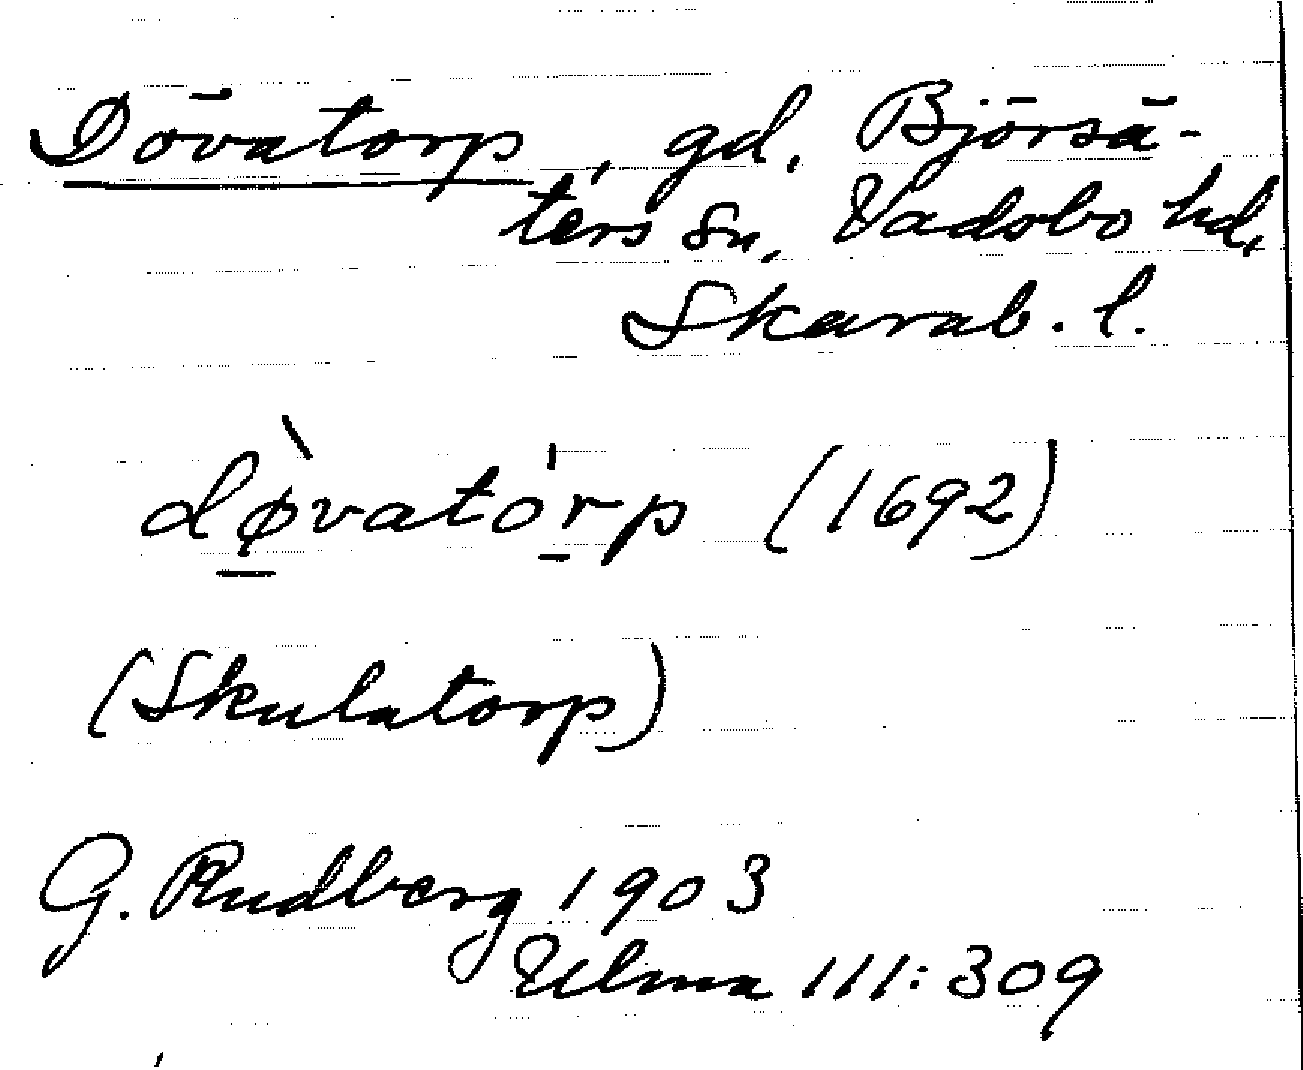 Dövatorp, gd. Björsä-
ters sn, Vadsbo hd,
Skarab. l.
dø̀vatȯrp (1692)
(Skulatorp)
G. Rudberg 1903
Ulma 111:309